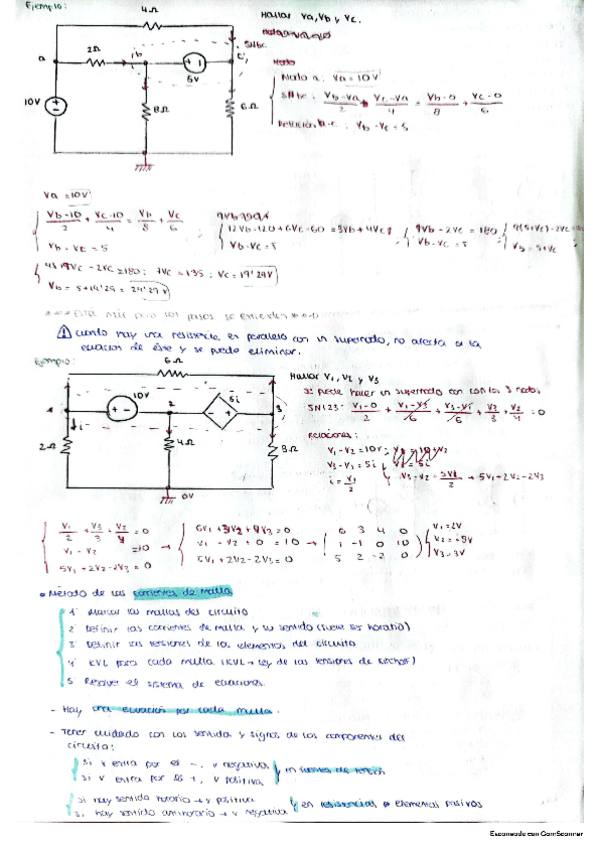 Ejemplo:
4Ω
Hallar Va, Vb y Vc.
SNbc
a
2Ω
b
c
5V
10V
8Ω
6Ω
Nodo
Nodo a: Va = 10V
SNbc: (Vb-Va)/2 + (Vc-Va)/4 = (Vb-0)/8 + (Vc-0)/6
Relación b-c: Vb - Vc = 5
Va = 10V
(Vb-10)/2 + (Vc-10)/4 = Vb/8 + Vc/6
Vb - Vc = 5
12Vb-120+6Vc-60=3Vb+4Vc
Vb-Vc=5
9Vb-2Vc=180
Vb-Vc=5
Vb=5+Vc
7Vc=135; Vc=19'29V
Vb = 5+19'29 = 24'29V
cuando hay una resistencia en paralelo con un supernodo, no afecta a la
ecuacion de éste y se puede eliminar.
Ejemplo:
6Ω
Hallar V1, V2 y V3
Se puede hacer un supernodo con los 3 nodos
10V
5i
1
2
3
i
2Ω
4Ω
3Ω
0V
SN123: (V1-0)/2 + (V1-V3)/6 + (V3-V1)/6 + V3/3 + V2/4 = 0
Relaciones:
V1-V2=10V
V3-V2=5i
i=V1/2
V3-V2=5V1/2
5V1+2V2-2V3
V1/2 + V3/3 + V2/4 = 0
V1 - V2 = 10
5V1+2V2-2V3=0
6V1+3V2+4V3=0
V1-V2+0=10
5V1+2V2-2V3=0
6 3 4 0
1 -1 0 10
5 2 -2 0
V1=2V
V2=-8V
V3=3V
Método de las corrientes de malla
1 Marcar las mallas del circuito
2 Definir las corrientes de malla y su sentido (suele ser horario)
3 Definir las tensiones de los elementos del circuito
4 KVL para cada malla (KVL → Ley de las tensiones de Kirchoff)
5 Resolver el sistema de ecuaciones.
- Hay una ecuación por cada malla.
- Tener cuidado con los sentidos y signos de los componentes del
circuito:
si v entra por el -, v negativa
si v entra por el +, v positiva
en fuentes de tensión
si hay sentido horario → v positiva
si hay sentido antihorario → v negativa
en resistencias o elementos pasivos
Escaneado con CamScanner